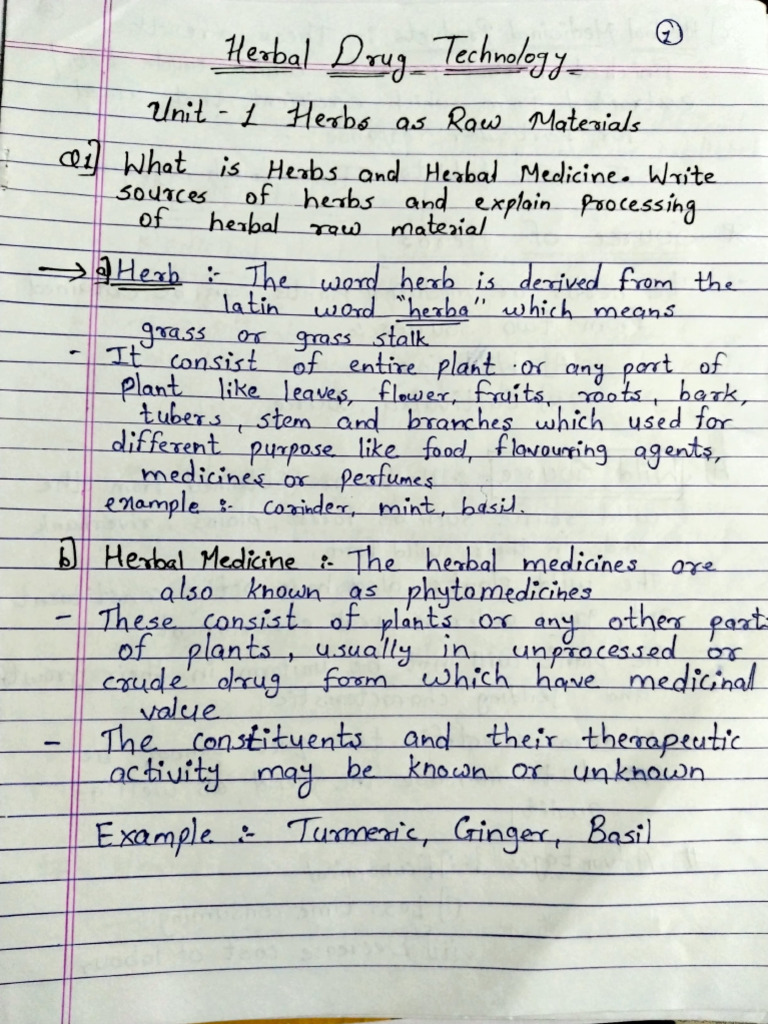 1
Herbal Drug Technology
Unit - 1 Herbs as Raw Materials
Q1] What is Herbs and Herbal Medicine. Write
sources of herbs and explain processing
of herbal raw material
→ a] Herb :- The word herb is derived from the
latin word "herba" which means
grass or grass stalk
- It consist of entire plant or any part of
plant like leaves, flower, fruits, roots, bark,
tubers, stem and branches which used for
different purpose like food, flavouring agents,
medicines or perfumes
example :- corinder, mint, basil.
b] Herbal Medicine :- The herbal medicines are
also known as phytomedicines
- These consist of plants or any other part
of plants, usually in unprocessed or
crude drug form which have medicinal
value
- The constituents and their therapeutic
activity may be known or unknown
Example :- Turmeric, Ginger, Basil